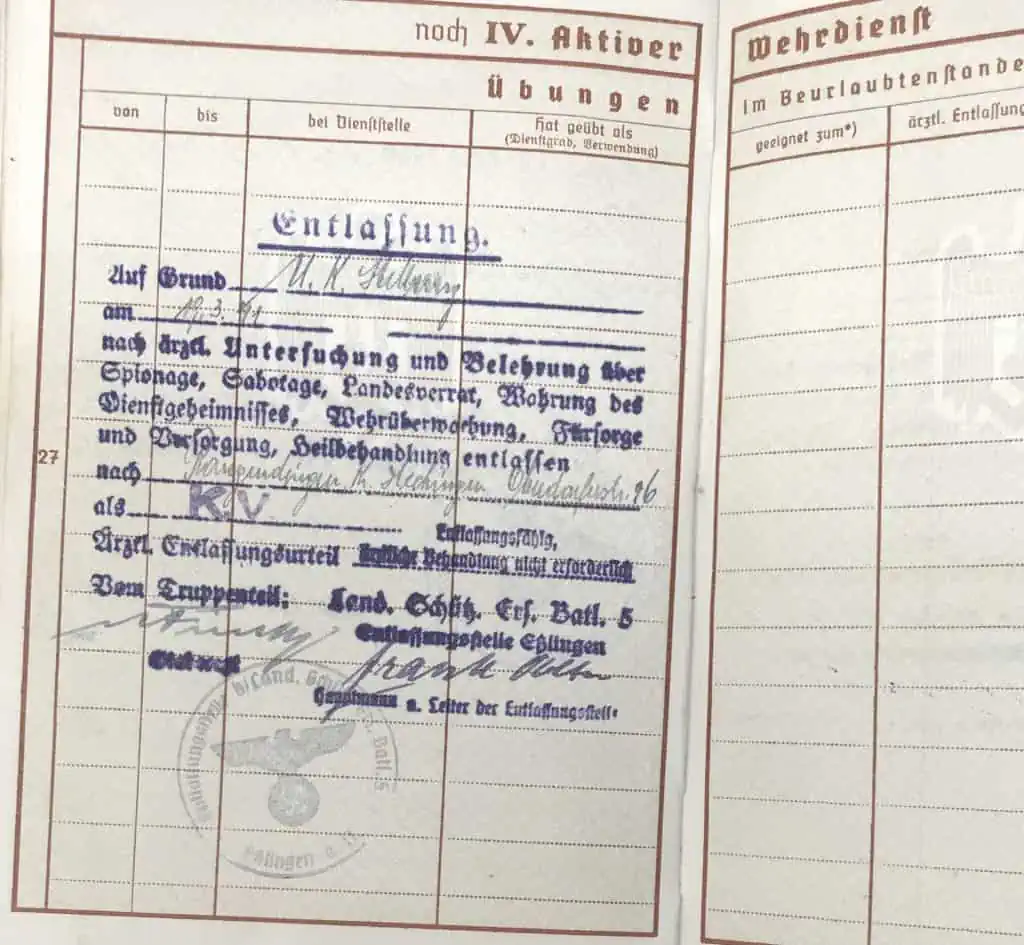 noch IV. Aktiver
Wehrdienst
Übungen
Im Beurlaubtenstande
von
bis
bei Dienststelle
Hat geübt als
(Dienstgrad, Verwendung)
geeignet zum*)
ärztl. Entlassung
Entlassung.
Auf Grund U. K. Stellung
am 19.3.
nach ärztl. Untersuchung und Belehrung über
Spionage, Sabotage, Landesverrat, Wahrung des
Dienstgeheimnisses, Wehrüberwachung, Fürsorge
und Versorgung, Heilbehandlung entlassen
27
nach Hechingen
als K.V
Entlassungsfähig,
Ärztl. Entlassungsurteil ärztliche Behandlung nicht erforderlich
Vom Truppenteil: Land. Schütz. Ers. Batl. 5
Entlassungsstelle Eßlingen
Frank
Hauptmann u. Leiter der Entlassungsstelle
b/Land. Batl. 5
Eßlingen a. N